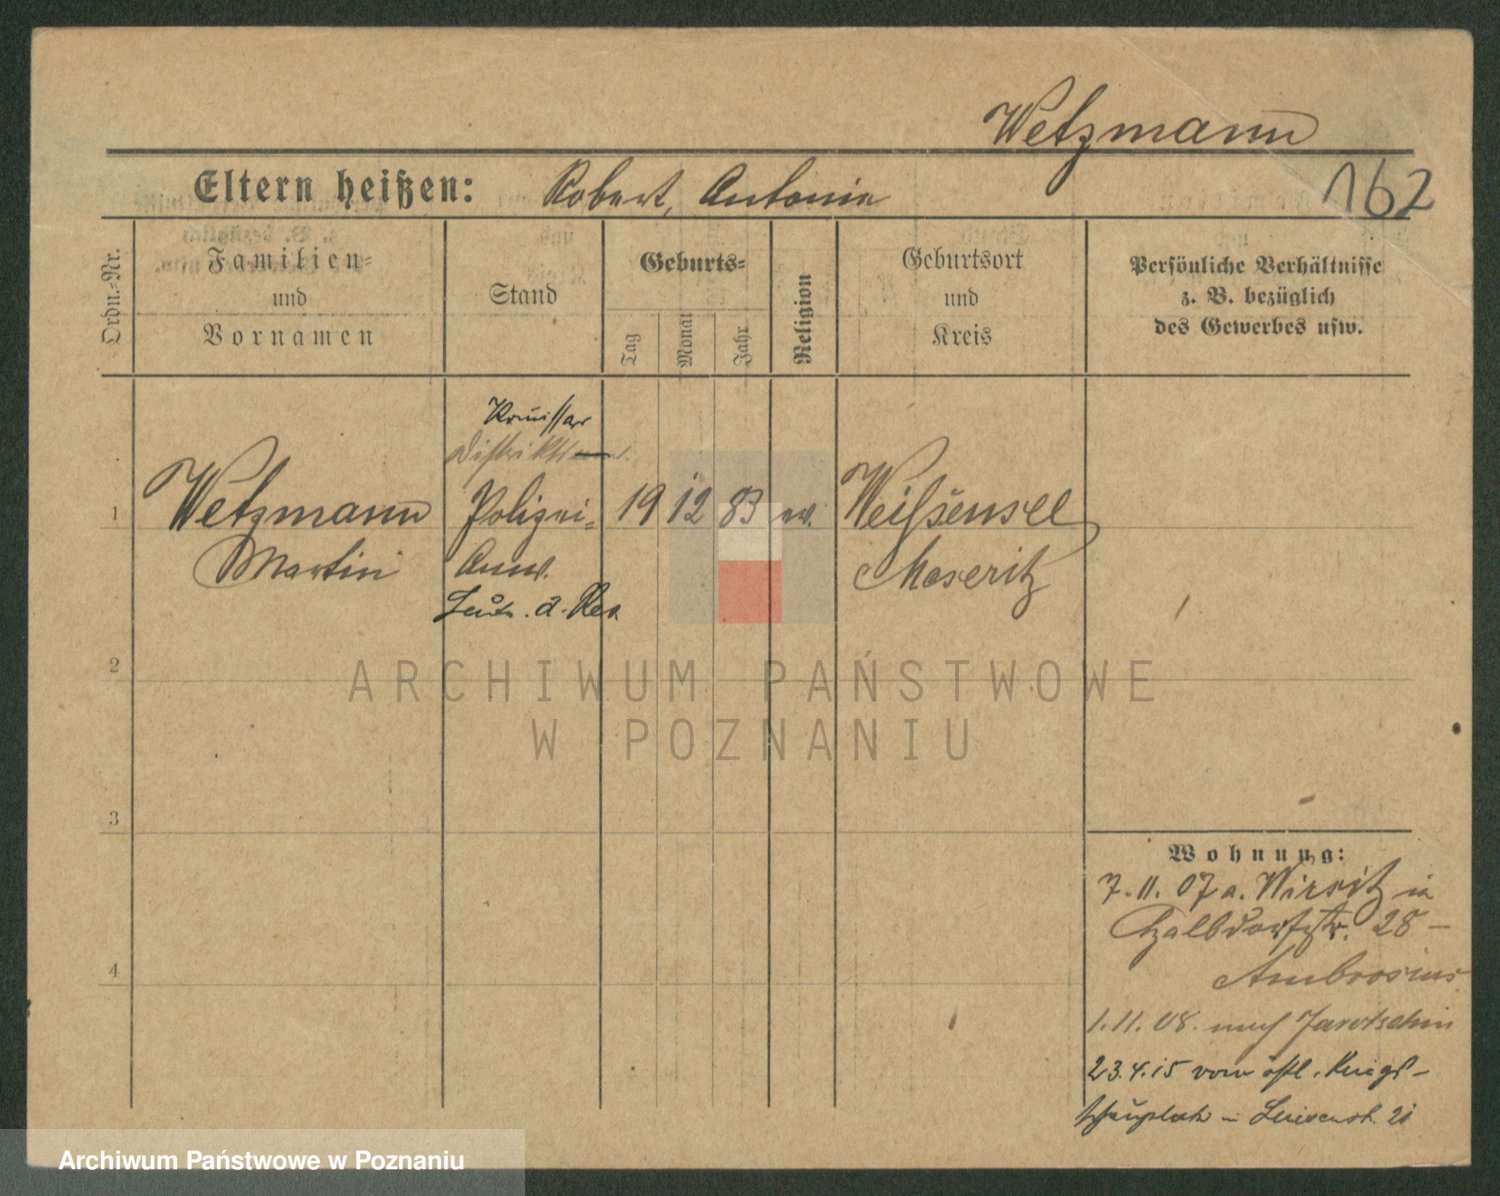 Wetzmann
162
Eltern heißen: Robert, Antonie
Ordn.-Nr.
Familien-
und
Vornamen
Stand
Geburts-
Tag
Monat
Jahr
Religion
Geburtsort
und
Kreis
Persönliche Verhältnisse
z. B. bezüglich
des Gewerbes usw.
Distrikts
1 Wetzmann Polizei- 19 12 83 ev. Weißensee
Martin Anw. Meseritz
Leutn. d. Res.
2
3
4
Wohnung:
7.11.07 a. Wirsitz in
28 -
Ambrosius
1.11.08. nach Jarotschin
23.4.15 vom östl. Kriegs-
schauplatz - Luisenstr.
ARCHIWUM PAŃSTWOWE
W POZNANIU
Archiwum Państwowe w Poznaniu